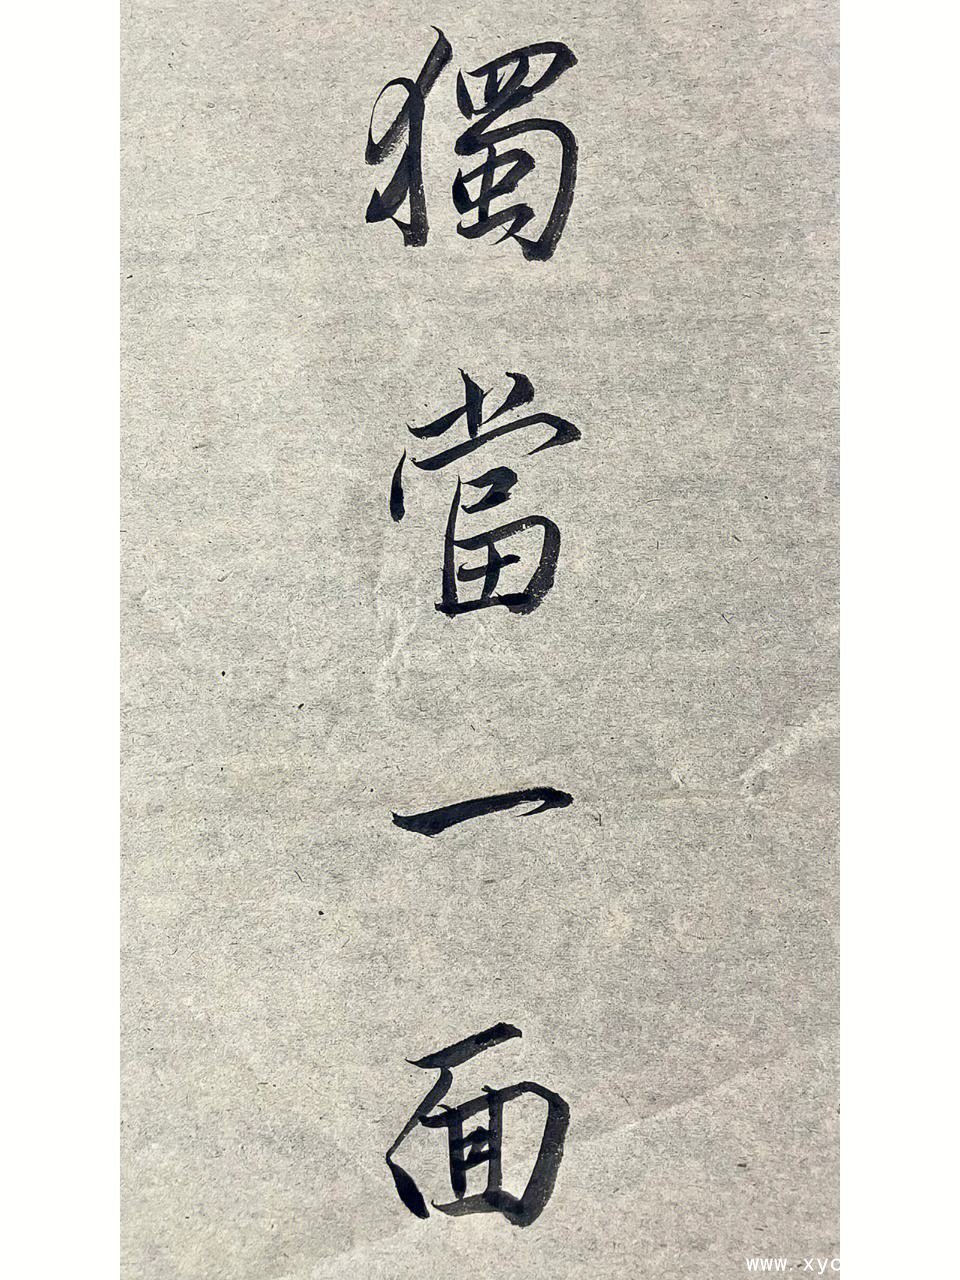 獨當一面
www.xyc